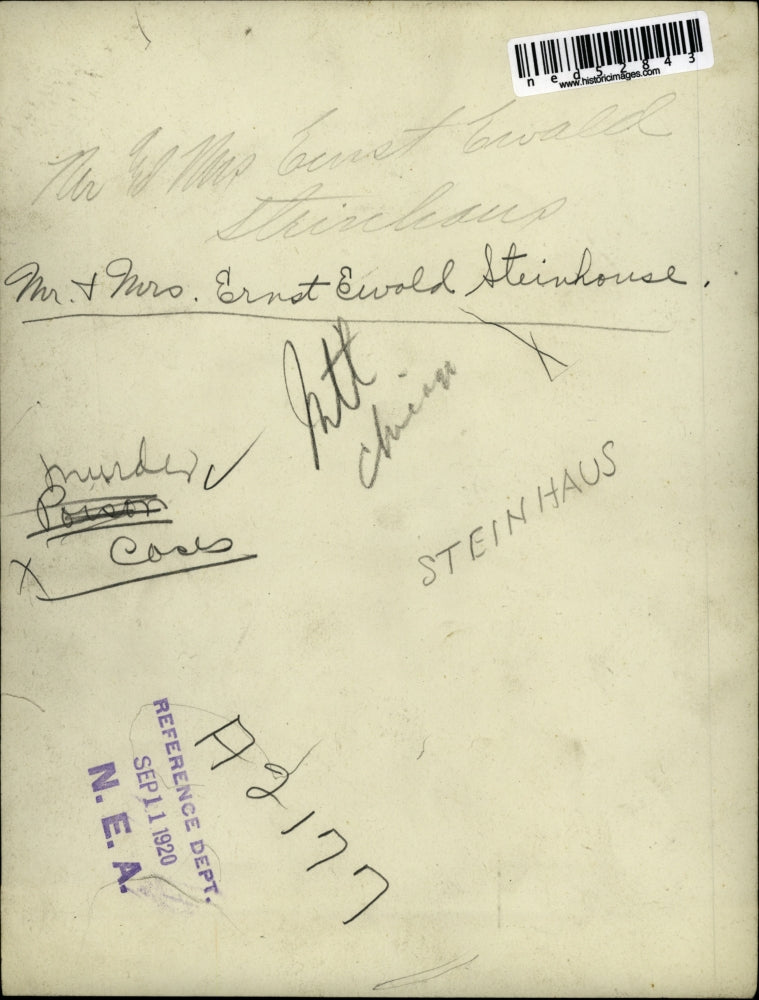 ned52843
www.historicimages.com
Mr & Mrs Ernst Ewald
Steinhaus
Mr. & Mrs. Ernst Ewald Steinhouse.
Chicago
Murder
Poison
Cases
STEINHAUS
REFERENCE DEPT.
SEP 11 1920
N. E. A.
A2177